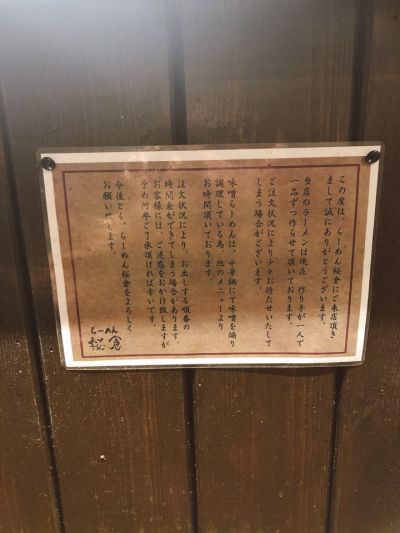 この度は、らーめん桜倉にご来店頂き
まして誠にありがとうございます。
当店のラーメンは現在、作り手が一人で
一品ずつ作らせて頂いております。
ご注文状況により少々お待たせいたして
しまう場合がございます。
味噌らーめんは、中華鍋にて味噌を煽り
調理している為、他のメニューより
お時間頂いております。
注文状況により、お出しする順番の
時間差ができてしまう場合があります。
お客様には、ご迷惑をおかけ致しますが
予め何卒ご了承頂ければ幸いです。
今後とも、らーめん桜倉をよろしく
お願い致します。
らーめん
桜倉